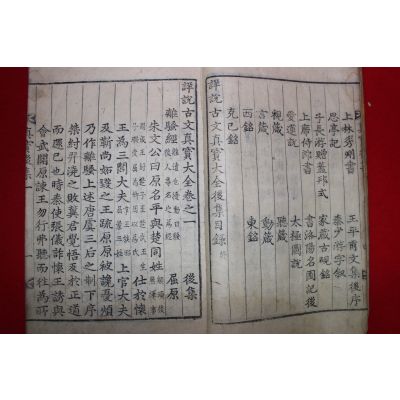 上林秀州書　王平甫文集後序
思亭記　秦少游字叙
子長游贈蓋邦式　家藏古硯銘
上席侍郎書　書洛陽名園記後
愛蓮說　太極圖說
視箴　聽箴
言箴　動箴
西銘　東銘
克己銘
詳說古文真寶大全後集目錄　終
詳說古文真寶大全卷之一　後集
離騷經　屈原
朱文公曰原名平與楚同姓　仕於懷
王爲三閭大夫　上官大夫
及靳尚妬譖之王疏原原被讒憂煩
乃作離騷上述唐虞三后之制下序
桀紂羿澆之敗冀君覺悟反於正道
而還己也時秦使張儀詐懷王誘與
會武關原諫王勿行弗聽而往爲所
真寶後集一